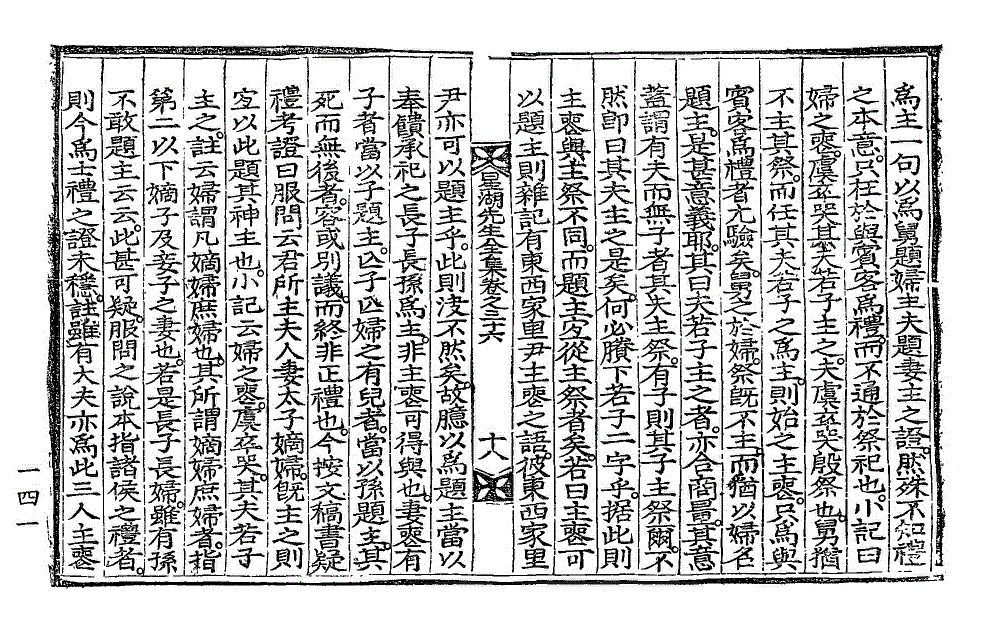 爲主一句以爲舅題婦主夫題妻主之證然殊不知禮
之本意只在於與賓客爲禮而不通於祭祀也小記曰
婦之喪虞卒哭其夫若子主之夫虞卒哭殷祭也舅猶
不主其祭而任其夫若子之爲主則始之主喪只爲與
賓客爲禮者尤驗矣舅之於婦祭旣不主而猶以婦名
題主是甚意義耶其曰夫若子主之者亦合商量其意
蓋謂有夫而無子者其夫主祭有子則其子主祭爾不
然卽曰其夫主之是矣何必贅下若子二字乎據此則
主喪與主祭不同而題主宜從主祭者矣若曰主喪可
以題主則雜記有東西家里尹主喪之語彼東西家里
星湖先生全集卷之三十六
十八
尹亦可以題主乎此則決不然矣故臆以爲題主當以
奉饋承祀之長子長孫爲主非主喪可得與也妻喪有
子者當以子題主亡子亡婦之有兒者當以孫題主其
死而無後者容或別議而終非正禮也今按文稿書疑
禮考證曰服問云君所主夫人妻太子嫡婦旣主之則
宜以此題其神主也小記云婦之喪虞卒哭其夫若子
主之註云婦謂凡嫡婦庶婦也其所謂嫡婦庶婦者指
第二以下嫡子及妾子之妻也若是長子長婦雖有孫
不敢題主云云此甚可疑服問之說本指諸侯之禮者
則今爲士禮之證未穩註雖有大夫亦爲此三人主喪
一四一